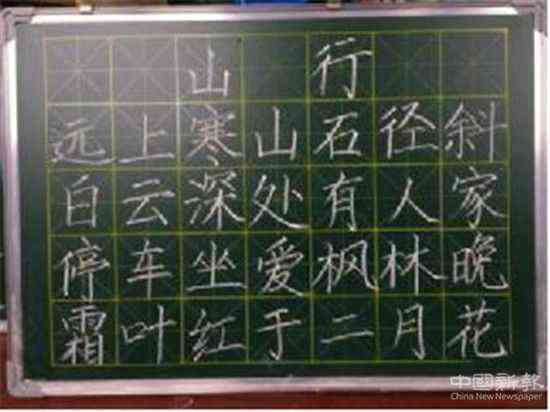 山行
远上寒山石径斜
白云深处有人家
停车坐爱枫林晚
霜叶红于二月花
中國新報
China New Newspaper